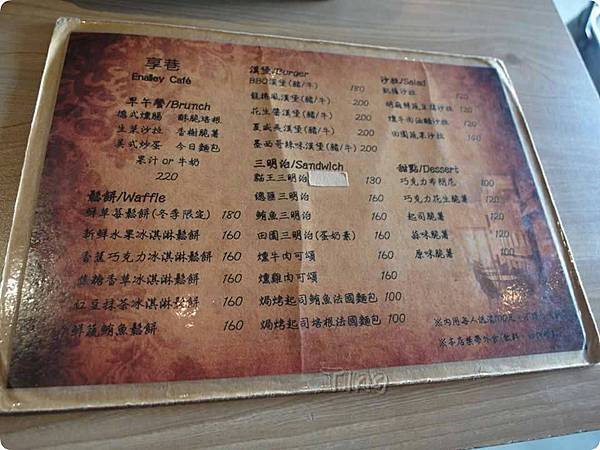 享巷
Enalley Café
早午餐/Brunch
德式燻腸 酥脆培根
生菜沙拉 香榭脆薯
美式炒蛋 今日麵包
果汁 or 牛奶
220
鬆餅/Waffle
鮮草莓鬆餅(冬季限定) 180
新鮮水果冰淇淋鬆餅 160
香蕉巧克力冰淇淋鬆餅 160
焦糖香草冰淇淋鬆餅 160
紅豆抹茶冰淇淋鬆餅 160
鮮蔬鮪魚鬆餅 160
漢堡/Burger
BBQ漢堡(豬/牛) 180
龍捲風漢堡(豬/牛) 200
花生醬漢堡(豬/牛) 200
夏威夷漢堡(豬/牛) 200
墨西哥辣味漢堡(豬/牛) 200
三明治/Sandwich
貓王三明治 180
總匯三明治 160
鮪魚三明治 160
田園三明治(蛋奶素) 160
燻牛肉可頌 160
燻雞肉可頌 160
焗烤起司鮪魚法國麵包 100
焗烤起司培根法國麵包 100
沙拉/Salad
凱撒沙拉 120
胡麻鮮蔬豆腐沙拉 120
燻牛肉油醋沙拉 120
田園蔬果沙拉 120
甜點/Dessert
巧克力布朗尼 100
巧克力花生脆薯 120
起司脆薯 120
蒜味脆薯 120
原味脆薯 100
※內用每人低消100元
※本店禁帶外食
Tina